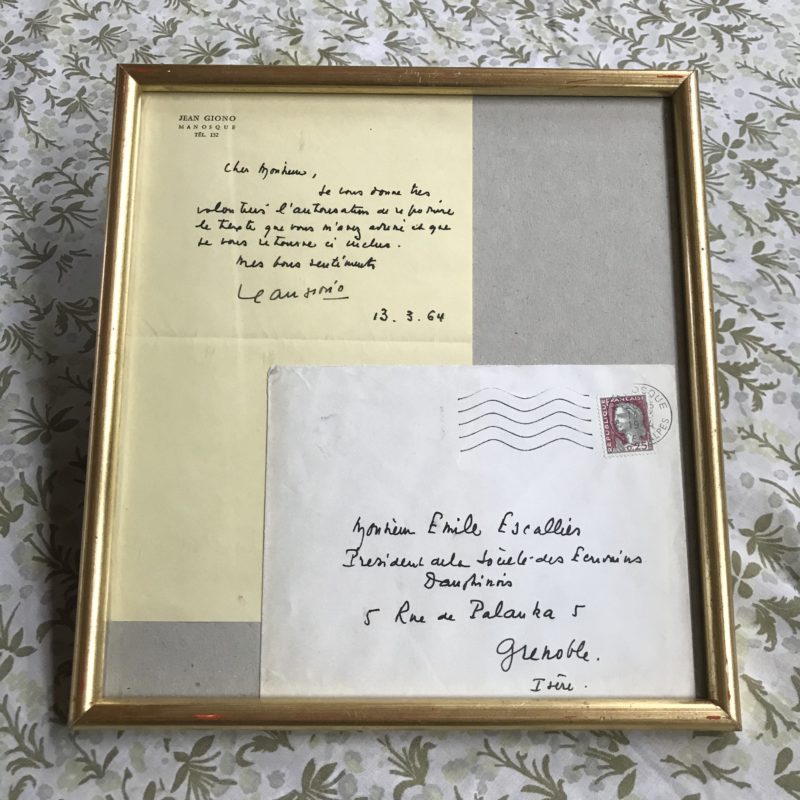 JEAN GIONO
MANOSQUE
TÉL. 132
Cher Monsieur,
Je vous donne très
volontiers l'autorisation de
le texte que vous m'avez adressé et que
je vous retourne ci inclus.
Mes bons sentiments
Jean Giono
13. 3. 64
OSQUE
ALPES
REPUBLIQUE FRANÇAISE
0,25
Monsieur Emile Escallier
President de la Société des Ecrivains
Dauphinois
5 Rue de Palanka 5
Grenoble.
Isère.